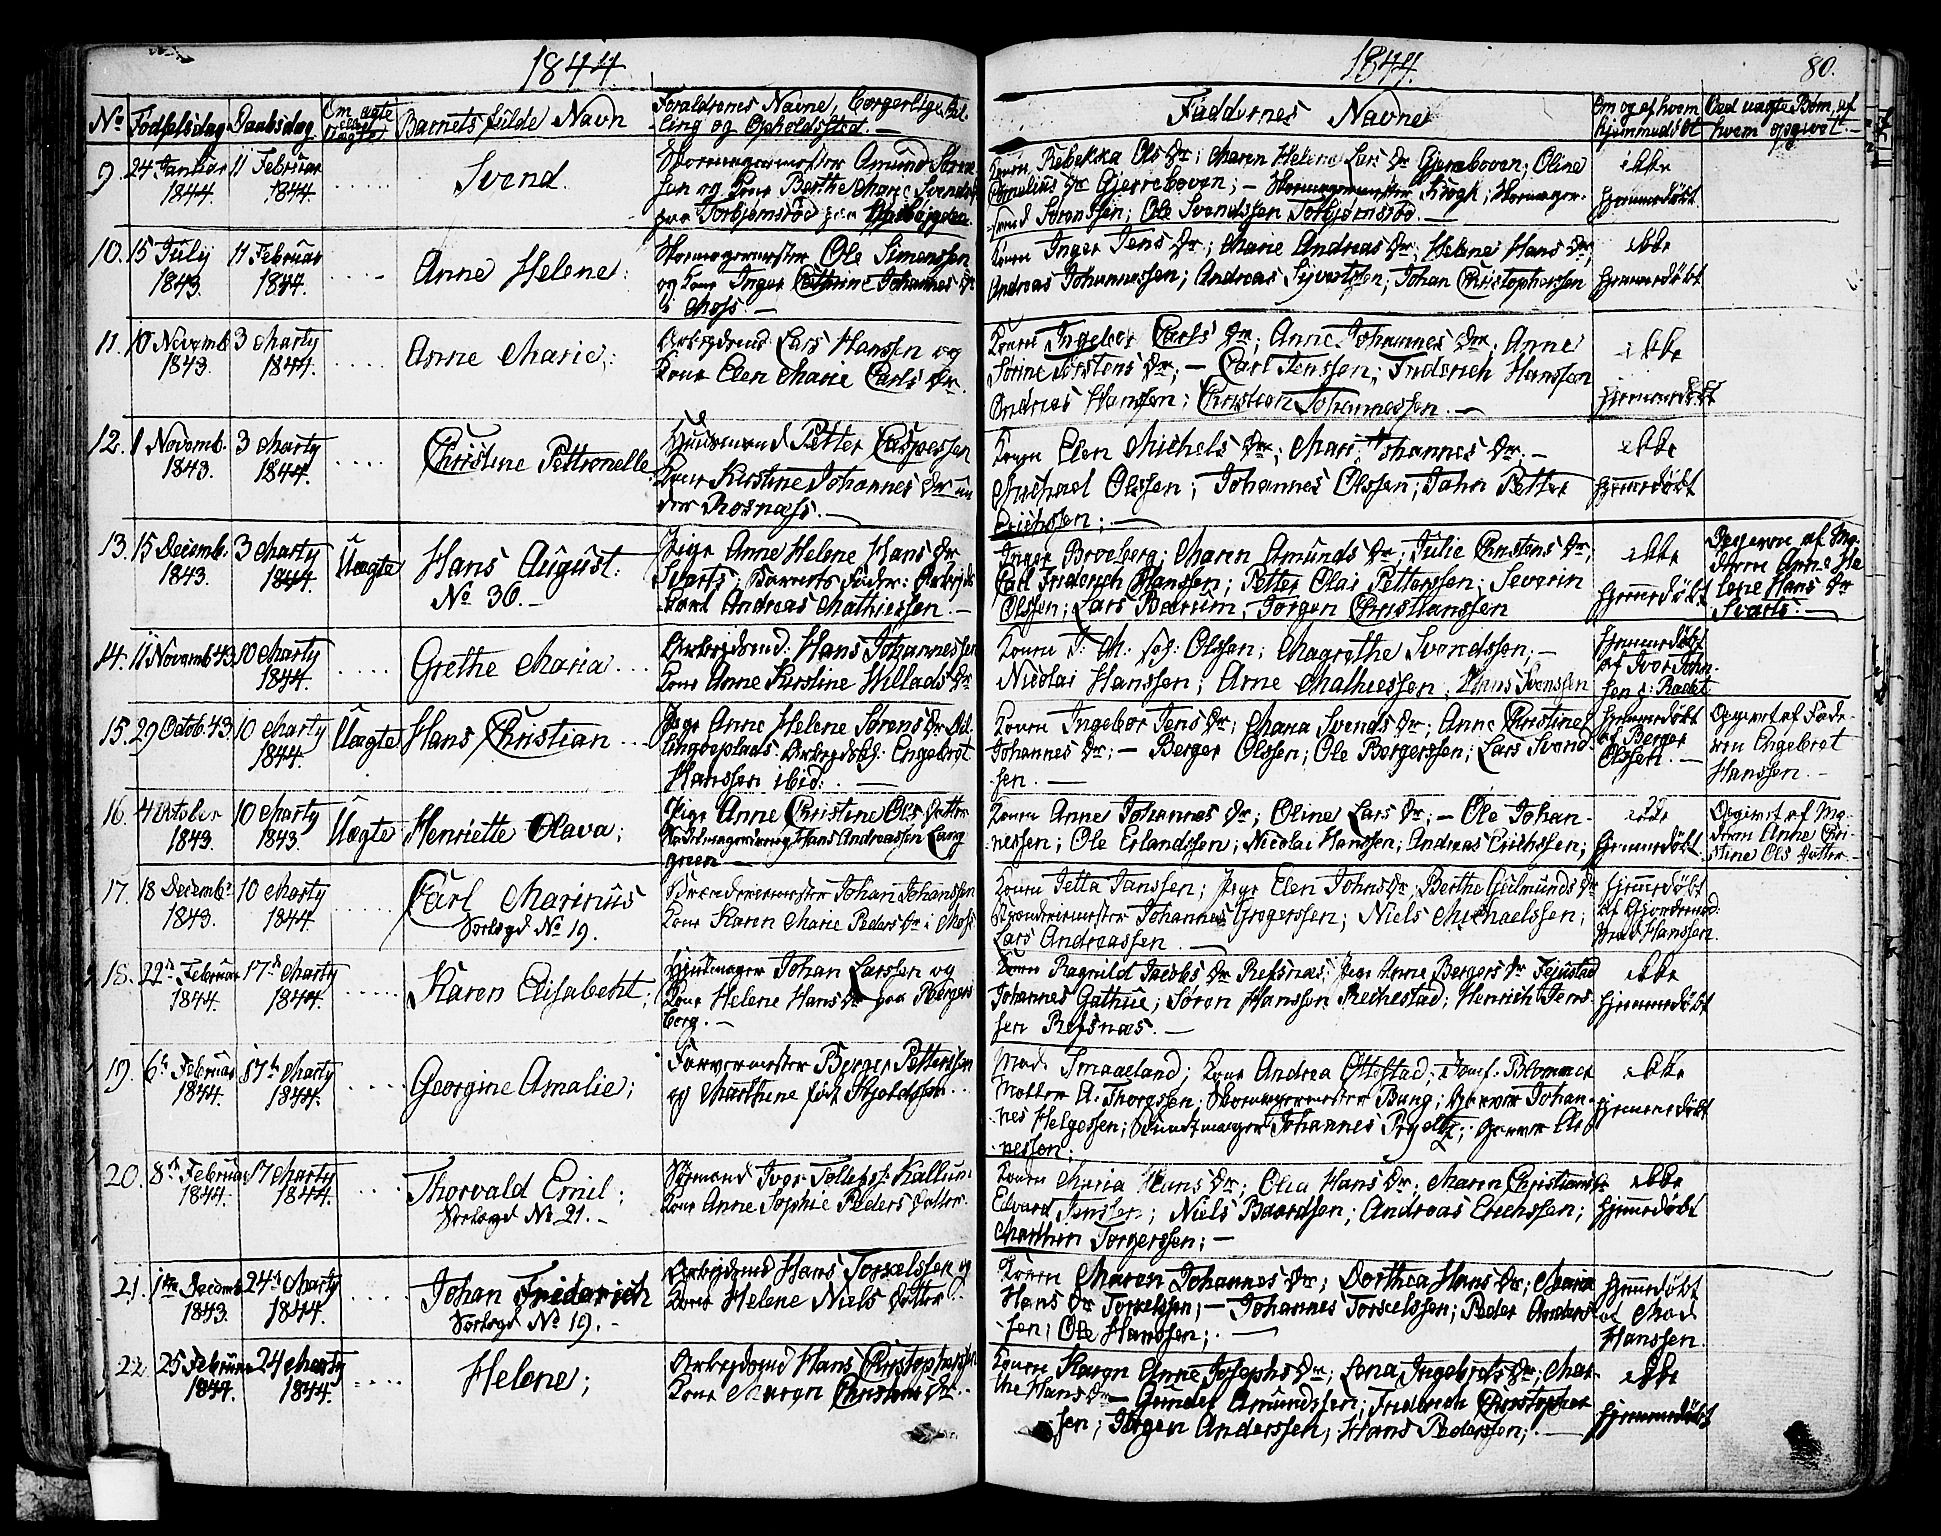 1844
1844.
80.
No Fødselsdag Daabsdag Om ægte eller Uægte Barnets fulde Navn
Forældrenes Navne, borgerlige Stil-
ling og Opholdssted. —
Faddernes Navne
Om og af hvem
hjemmedøbt
Ved uægte Børn, af
hvem opgivet. —
9. 24 Januar 11 Februar Svend.
1844. 1844.
Skomagermester Amund Søren-
sen og Kone Berthe Marie Svends dr
paa Torbjørnsrød
Konen Rebekka Ols Dr; Maren Helene Lars Dr Gjerreboven; Oline
Cornelius Dr Gjerreboven; — Skomagermester Krogh; Skomager-
svend Sørenssen; Ole Svendssen Torbjørnsrød. —
ikke
hjemmedøbt
10. 15 July 11 Februar Anne Helene:
1843. 1844.
Skomagermester Ole Simenssen
og Kone Inger Cathrine Johannes Dr
i Moss. —
Konen Inger Jens Dr; Marie Andreas Dr; Helene Hans Dr;
Andreas Johannessen; Andreas Syvertssen; Johan Christopherssen
ikke
hjemmedøbt
11. 10 Novemb. 3 Marty Anne Marie;
1843. 1844.
Arbejdsmd. Lars Hanssen og
Kone Elen Marie Carls Dr.
Konen Ingebor Carls Dr; Anne Johannes Dr; Anne
Sørine Torstens Dr; — Carl Jenssen; Friderich Hanssen
Andreas Hanssen; Christian Johannessen. —
ikke
hjemmedøbt
12. 1 Novemb. 3 Marty Christine Pettronelle
1843. 1844.
Huusmand Petter Casperssen
Kone Kirstine Johannes Dr un-
der Rosnæss. —
Konen Elen Michels Dr; Mari Johannes Dr; —
Michael Olssen; Johannes Olssen; John Petter
Erichssen; —
ikke
hjemmedøbt
13. 15 Decemb. 3 Marty Uægte Hans August.
1843. 1844. No 36. —
Pige Anne Helene Hans Dr
Svarts; Barnets Fader: Arbejds-
karl Andreas Mathiessen. —
Inger Broeberg; Maren Amunds Dr; Julie Christens Dr;
Carl Friderich Hanssen; Petter Olai Petterssen; Severin
Olssen; Lars Bærum; Jørgen Christianssen
ikke
hjemmedøbt
Opgiven af Mo-
deren Anne He
lene Hans Dr
Svarts. —
14. 11 Novemb 43 10 Marty Grethe Maria
1844.
Arbejdsmd. Hans Johannessen
Kone Anne Kirstine Hillads Dr
Konen J. M. Olssen; Magrethe Svendssen; —
Nicolai Hanssen; Arne Mathiessen; Hans Svenssen
hjemmedøbt
af Iver John-
sens
15. 29 Octob. 43 10 Marty Uægte Hans Christian
1844.
Pige Anne Helene Sørens Dr
Engebret
Hanssen ibid. —
Konen Ingebor Jens Dr; Maria Svends Dr; Anne Christine
Johannes Dr; — Berger Olssen; Ole Borgerssen; Lars Svend-
sen. —
hjemmedøbt
af Berger
Olssen. —
Opgivet af Fade-
ren Engebret
Hanssen. —
16. 4 October 10 Marty Uægte Henriette Olava;
1843. 1843.
Pige Anne Christine Ols Datter
Hans Andreassen Lang
green —
Konen Anne Johannes Dr; Oline Lars Dr; — Ole Johan-
nessen; Ole Erlandssen; Nicolai Hanssen; Andreas Erichssen;
ikke
hjemmedøbt
Opgivet af Mo-
deren Anne Chri-
stine Ols Datter. —
17. 18 Decemb. 10 Marty Carl Marinius
1843. 1844. No 19.
Johan Johanssen
Kone Karen Marie Peders Dr i Moss
Konen Jetta Janssen; Pige Elen Johns Dr; Berthe Gulmunds Dr
Johannes Grogerssen; Niels Michaelssen;
Lars Andreassen. —
hjemmedøbt
af
Hanssen.
18. 22de Februar 17de Marty Karen Elisabeht;
1844. 1844.
Johan Larssen og
Kone Helene Hans Dr paa Bergers
borg. —
Konen Ragnild Jacobs Dr Refsnæs; Pige Anne Bergers Dr
Johannes Gathue; Søren Hanssen; Henrich Jens-
sen Refsnæs. —
ikke
hjemmedøbt
19. 6te Februar 17de Marty Georgine Amalie;
1844. 1844.
Farvermester Berger Petterssen
og Marthine født Skjoldssen
Mad. Smaaeland; Kone Andrea Ottestad; Jomf. Blommer
A. Thorgssen. Skomagermester Bung; Garver Johan-
nes Helgessen; Buntmager Johannes; Garver
nessen;
ikke
hjemmedøbt
20. 8de Februar 17 Marty Thorvald Emil;
1844. 1844. No 21. —
Sømand Iver Tollefss. Kallum
Kone Anne Sophie Peders Datter
Konen Maria Hans Dr; Olia Hans Dr; Maren Christians Dr
Edvard Jenssen; Niels Baardsen; Andreas Erichssen;
Marthin Torgerssen; —
ikke
hjemmedøbt
21. 1ste Decemb. 24de Marty Johan Friderich
1843. 1844. No 19. —
Arbejdsmd Hans Torkelssen og
Kone Helene Niels Datter
Konen Maren Johannes Dr; Dorthea Hans Dr; Maria
Hans Dr Torkelssen; — Johannes Torkelssen; Peder Anders-
sen; Ole Hanssen; —
hjemmedøbt
af Mad
Hanssen.
22. 25 Februar 24 Marty Helene;
1844. 1844.
Arbejdsmd Hans Christopherssen
Kone Maren Christians Dr.
Konen Karen Anne Josephs Dr; Lena Ingebrets Dr; Mar-
the Hans Dr — Gunder Amundssen; Friderich Christopher-
sen; Jørgen Anderssen; Hans Pederssen; —
ikke
hjemmedøbt